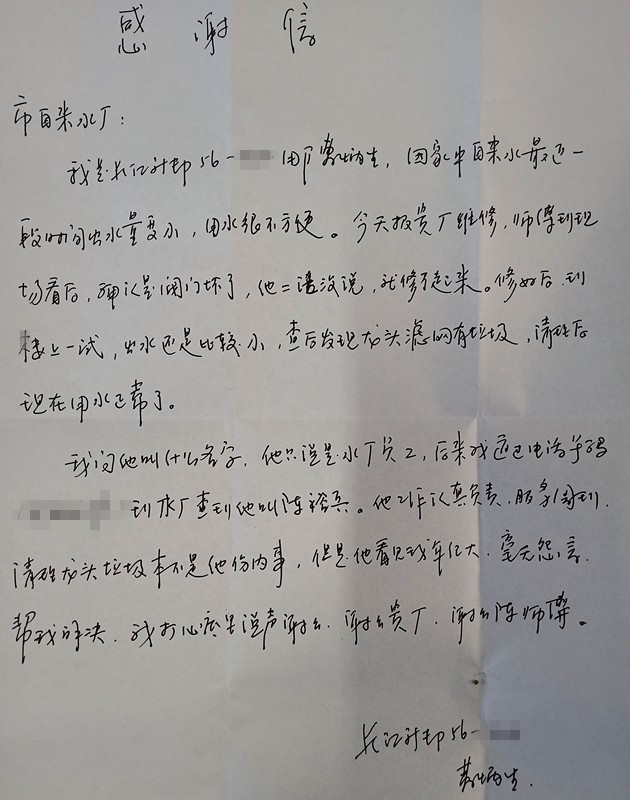 感谢信
市自来水厂：
我是长江新邨56- 用户黄炳生，因家中自来水最近一
段时间出水量变小，用水很不方便。今天报贵厂维修，师傅到现
场看后，确认是阀门坏了，他二话没说，就修了起来。修好后，到
楼上一试，出水还是比较小，查后发现龙头滤网有垃圾，清理后
现在用水正常了。
我问他叫什么名字，他只说是水厂员工，后来我通过电话号码
到水厂查到他叫陈裕兵。他工作认真负责，服务周到，
清理龙头垃圾本不是他份内事，但是他看见我年纪大，毫无怨言，
帮我解决，我打心底里说声谢谢，谢谢贵厂，谢谢陈师傅。
长江新邨56-
黄炳生.